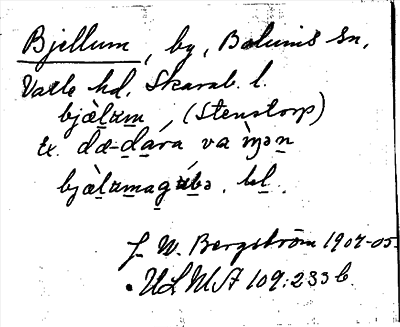 Bjellum, by, Bolums sn,
Valle hd, Skarab. l.
bjæ̀lʉm, (Stenstorp)
Ex. dæ-dạra va ìŋən
bjæ̀lʉmagʉbə. bl.
J. W. Bergström 1904-05.
ULMA 109:233 b.